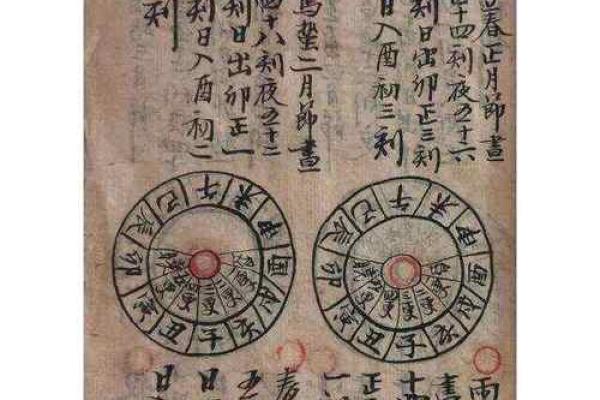 春正月節晝
四十四刻夜五十六
刻日出卯正三刻
日入酉初三刻
蟄二月節晝
四十八刻夜五十二
刻日出卯正一
刻日入酉初二
刻
子丑寅卯辰巳午未申酉戌亥
二更
三更
四更
子丑寅卯辰巳午未申酉戌亥
二更
三更
雨
晝
十
正
春
五
日
日